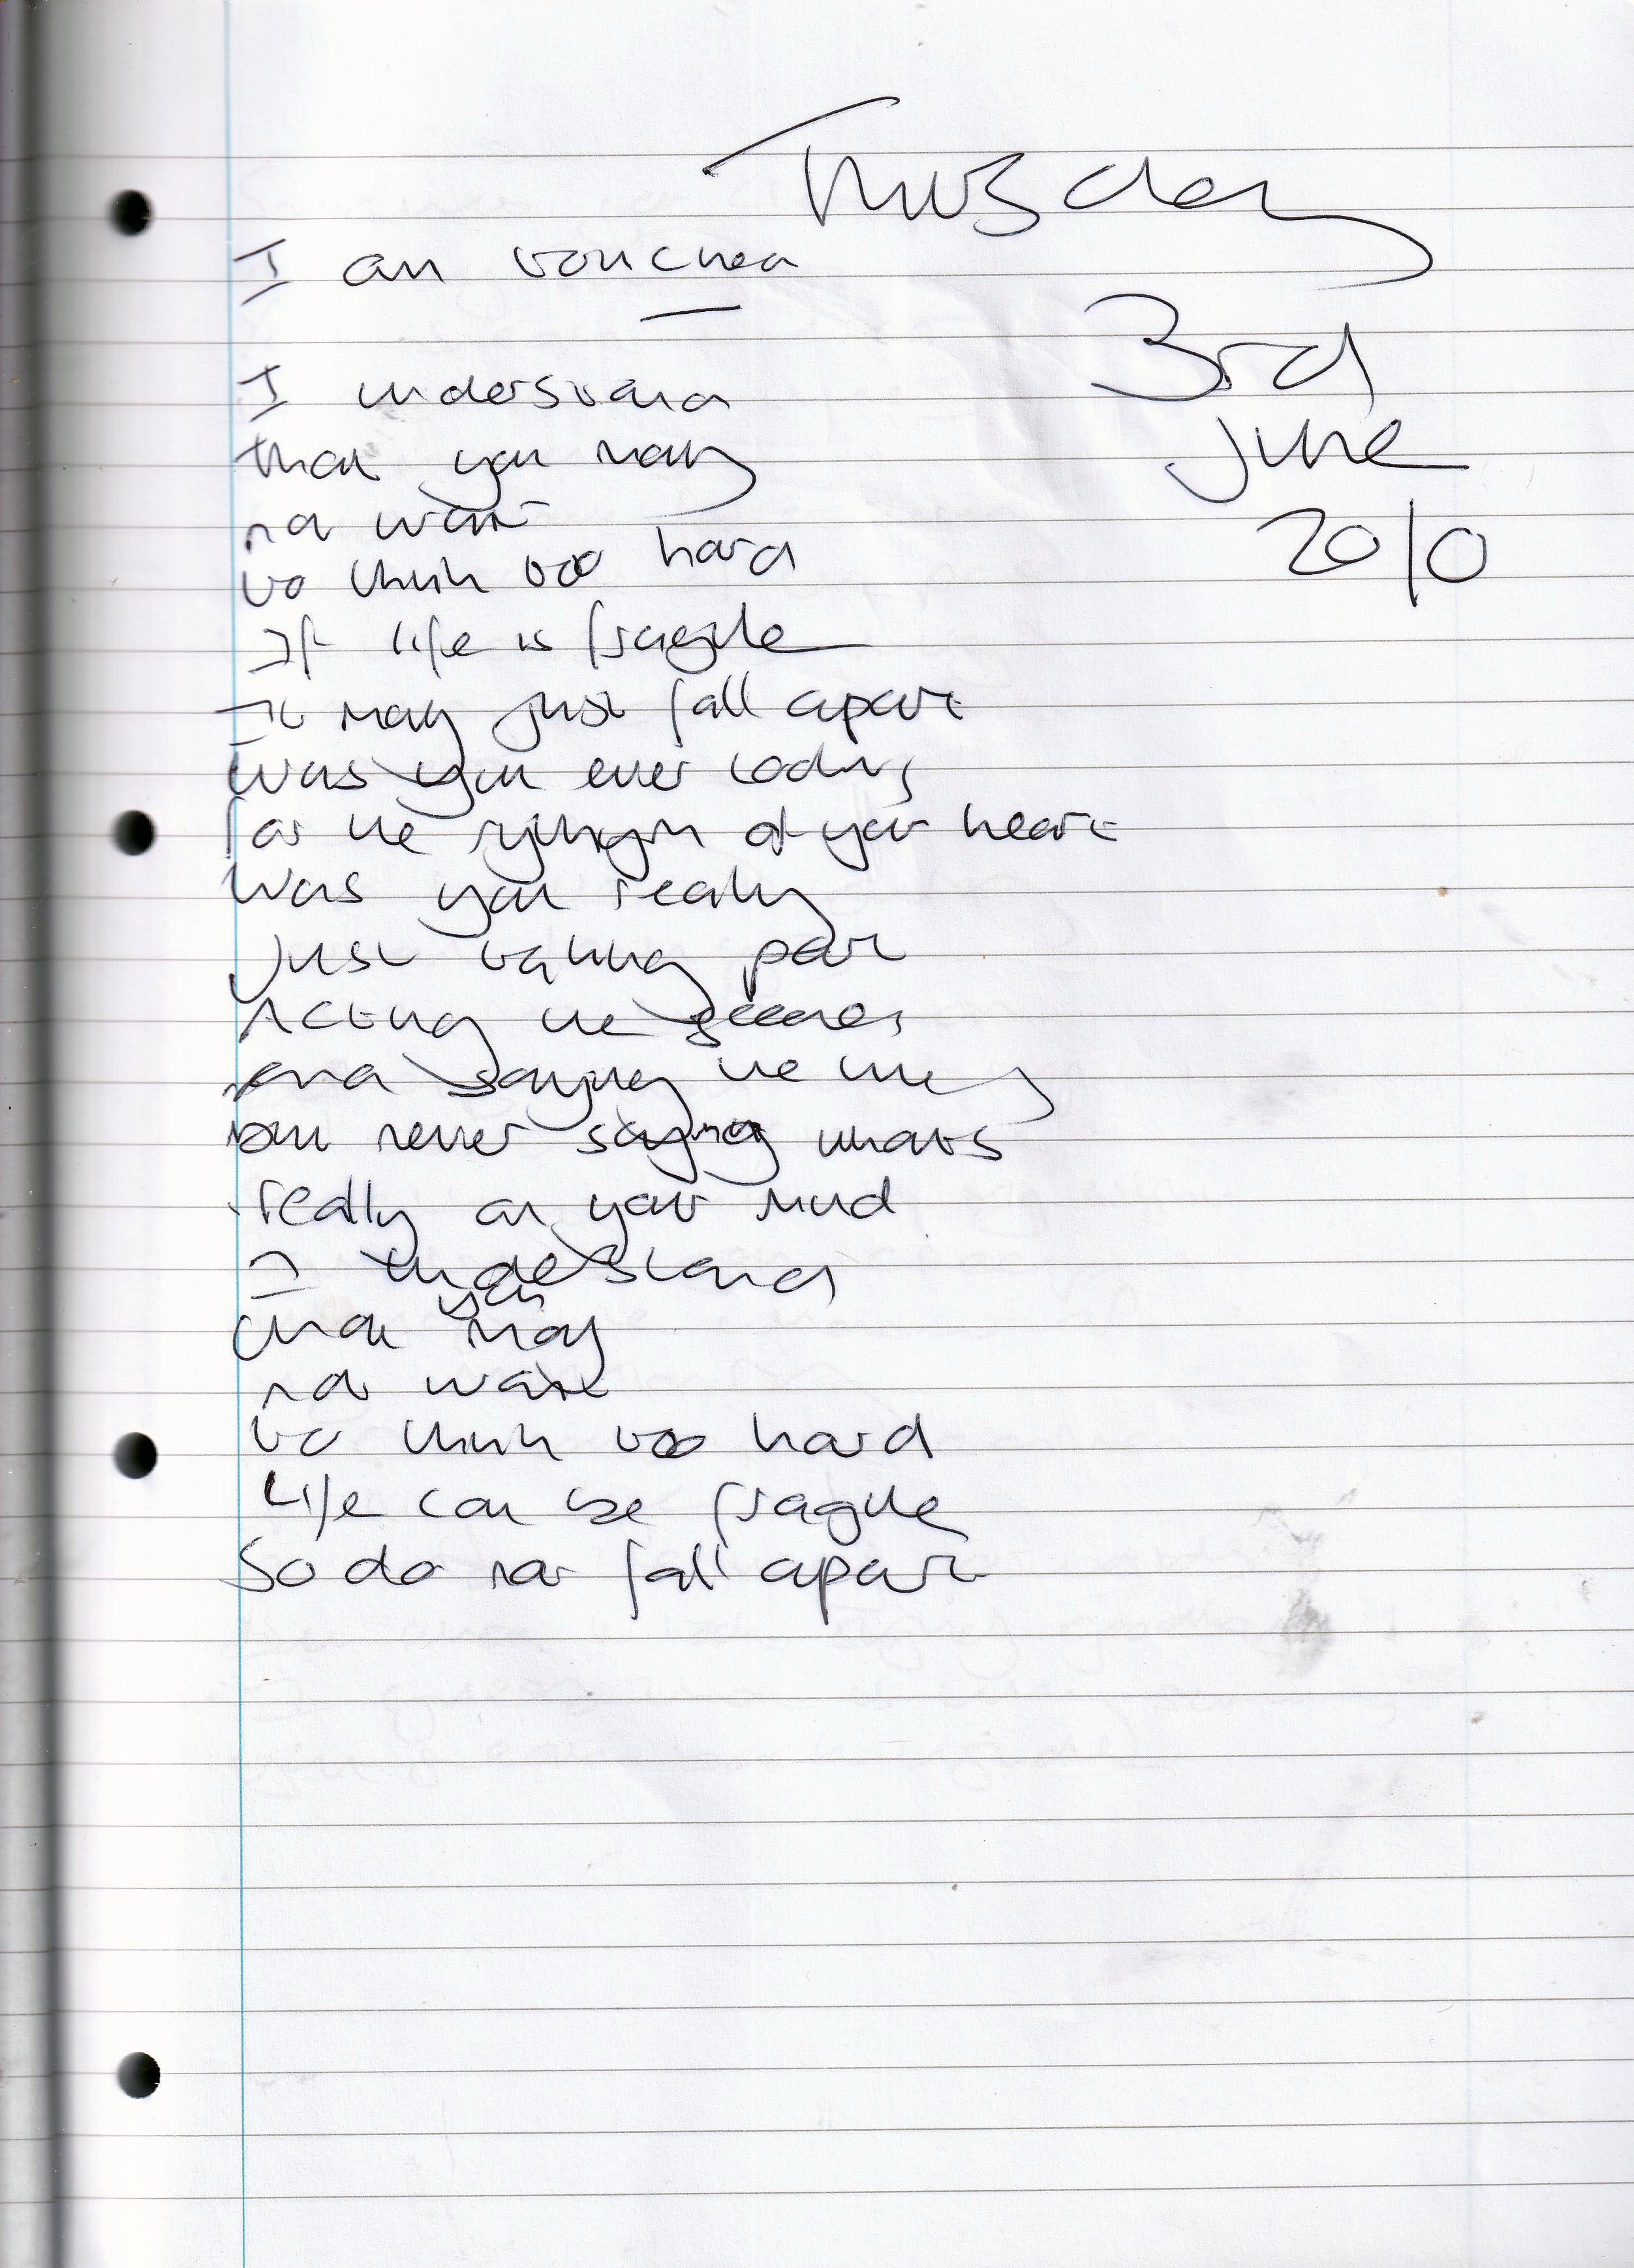 Thursday
I am touched
3rd
I understand
June
that you may
2010
not want
to think too hard
If life is fragile
It may just fall apart
Was you ever looking
for the rythym of your heart
Was you really
just taking part
Acting the scenes
and saying the lines
but never saying whats
really on your mind
I understand
that you may
not want
to think too hard
Life can be fragile
So do not fall apart